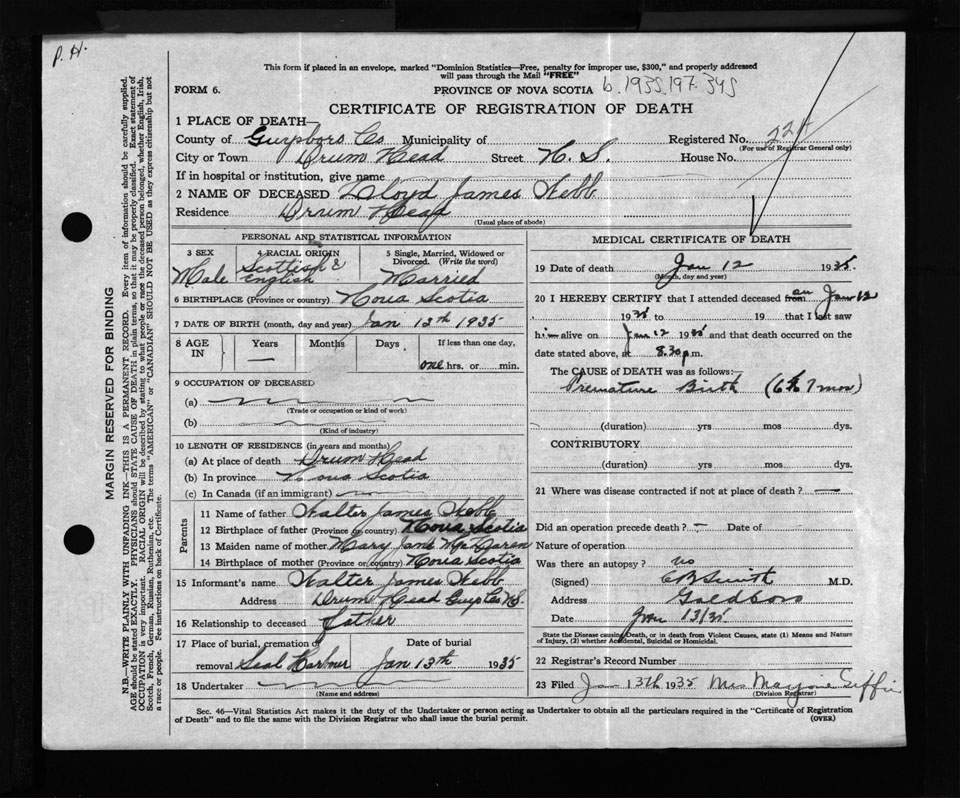 P. H.
This form if placed in an envelope, marked "Dominion Statistics—Free, penalty for improper use, $300," and properly addressed
will pass through the Mail "FREE"
FORM 6.
PROVINCE OF NOVA SCOTIA
b. 1935.197.345
CERTIFICATE OF REGISTRATION OF DEATH
1 PLACE OF DEATH—
County of Guysboro Co Municipality of
Registered No.
(For use of Registrar General only)
City or Town Drum Head Street N. S. House No.
If in hospital or institution, give name
2 NAME OF DECEASED Lloyd James Webb
Residence Drum Head
(Usual place of abode)
PERSONAL AND STATISTICAL INFORMATION
3 SEX
Male
4 RACIAL ORIGIN
Scottish &
English
5 Single, Married, Widowed or
Divorced. (Write the word)
Married
6 BIRTHPLACE (Province or country) Nova Scotia
7 DATE OF BIRTH (month, day and year) Jan 12th 1935
8 AGE
IN
Years
Months
Days
If less than one day,
one hrs. or min.
9 OCCUPATION OF DECEASED
(a)
(Trade or occupation or kind of work)
(b)
(Kind of industry)
10 LENGTH OF RESIDENCE (in years and months)
(a) At place of death Drum Head
(b) In province Nova Scotia
(c) In Canada (if an immigrant)
Parents
11 Name of father Walter James Webb
12 Birthplace of father (Province or country) Nova Scotia
13 Maiden name of mother Mary Jane
14 Birthplace of mother (Province or country) Nova Scotia
15 Informant's name Walter James Webb
Address Drum Head Guys Co N.S.
16 Relationship to deceased Father
17 Place of burial, cremation or Date of burial
removal Seal Harbour Jan 13th 1935
18 Undertaker
(Name and address)
MEDICAL CERTIFICATE OF DEATH
19 Date of death Jan 12 1935.
(Month, day and year)
20 I HEREBY CERTIFY that I attended deceased from on Jan 12
1935 to 19 that I last saw
him alive on Jan 12 1935 and that death occurred on the
date stated above, at 8.30 p.m.
The CAUSE OF DEATH was as follows:—
Premature Birth (6 to 7 mos)
(duration) yrs mos dys.
CONTRIBUTORY.
(duration) yrs mos dys.
21 Where was disease contracted if not at place of death? —
Did an operation precede death? — Date of
Nature of operation
Was there an autopsy? no
(Signed) CB Smith M.D.
Address Goldboro
Date Jan 13/35
State the Disease causing Death, or in death from Violent Causes, state (1) Means and Nature
of Injury, (2) whether Accidental, Suicidal or Homicidal.
22 Registrar's Record Number
23 Filed Jan 13th 1935 Mrs Marjorie Giffin
(Division Registrar)
Sec. 46—Vital Statistics Act makes it the duty of the Undertaker or person acting as Undertaker to obtain all the particulars required in the "Certificate of Registration
of Death" and to file the same with the Division Registrar who shall issue the burial permit.
(OVER)
MARGIN RESERVED FOR BINDING
N.B.—WRITE PLAINLY WITH UNFADING INK—THIS IS A PERMANENT RECORD. Every item of information should be carefully supplied.
AGE should be stated EXACTLY. PHYSICIANS should STATE CAUSE OF DEATH in plain terms, so that it may be properly classified. Exact statement of
OCCUPATION is very important. RACIAL ORIGIN will be described by stating to what people or race the deceased person belonged, whether English, Irish,
Scotch, French, German, Russian, Ruthenian, etc. The terms "AMERICAN" or "CANADIAN" SHOULD NOT BE USED as they express citizenship but not
a race or people. See instructions on back of Certificate.